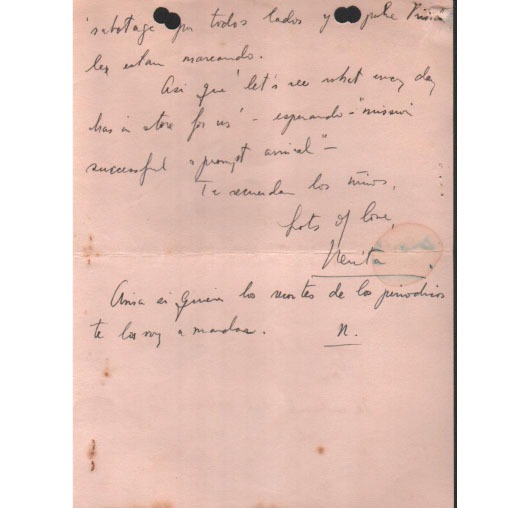 sabotage por todos lados y pobre
les estan mareando.
Asi que 'let's see what every day
has in store for us' - esperando - "mission
successful & prompt arrival" -
Te recuerdan los niños,
Lots of love,
Nenita
Avisa si quieres los recortes de los periodicos
te los voy a mandar. N.